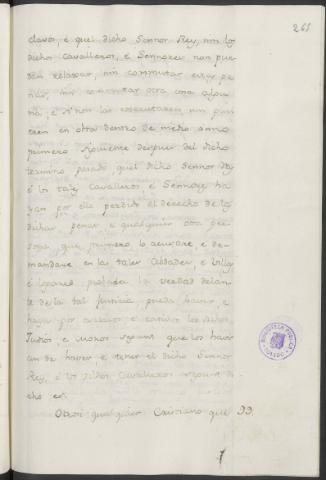 265
clavos, e quel dicho Sennor Rey, nin los
dichos Cavalleros, e Sennores non pue
dan relaxar, nin commutar estas pe
nas, nin comentar otra cosa alguna
e si non las executaren nin pusi
eren en obra dentro de medio anno
primero siguiente despues del dicho
termino pasado, quel dicho Sennor Rey
e los tales Cavalleros, e Sennores ha
yan por ello perdido el derecho de las
dichas penas, e qualquier otra per
sona que primero lo acusare, e de
mandare en las tales Cibdades, e Villas
e logares, probada la verdad delan
te de la tal Justicia pueda haver, e
haya por esclavos, e cativos los dichos
Judios, e Moros segunt que los havi
an de haver, e tener el dicho Sennor
Rey, e los dichos Cavalleros segunt di
cho es.
Otrosi qualquier Cristiano que 99.
BIBLIOTECA PUBLICA
TOLEDO